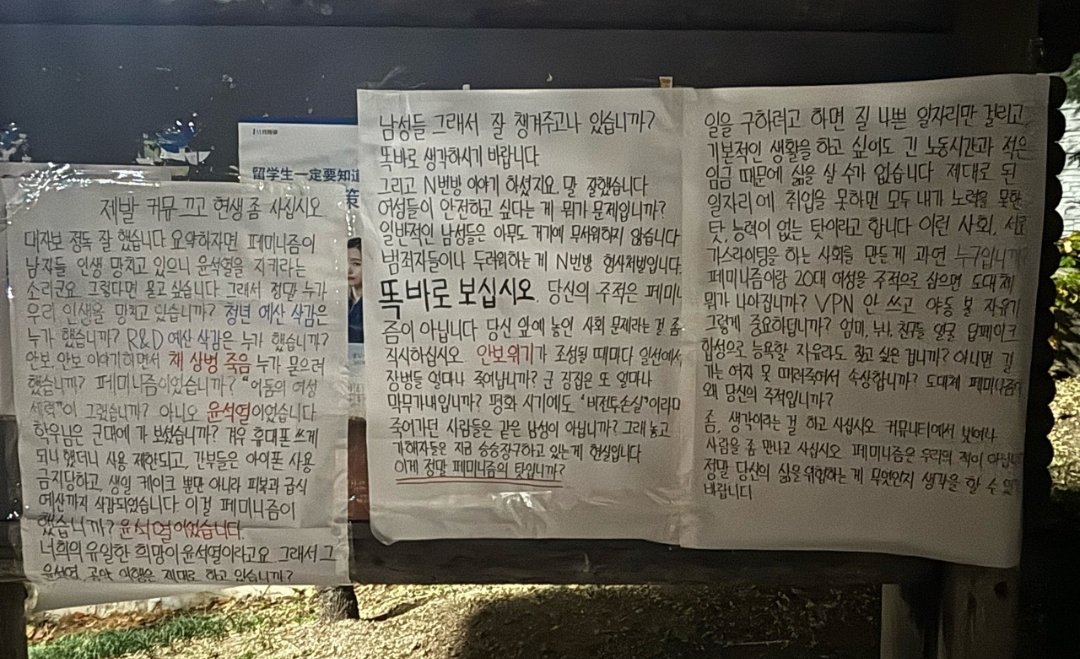 留学生一定要知道
제발 커뮤 끄고 현생 좀 사십시오
대자보 정독 잘 했습니다 요약하자면 페미니즘이
남자들 인생 망치고 있으니 윤석열을 지키라는
소리군요. 그렇다면 묻고 싶습니다. 그래서 정말 누가
우리 인생을 망치고 있습니까? 청년 예산 삭감은
누가 했습니까? R&D 예산 삭감은 누가 했습니까?
안보, 안보 이야기하면서 채 상병 죽음 누가 묻으려
했습니까? 페미니즘이었습니까? "어둠의 여성
세력"이 그랬습니까? 아니오 윤석열이었습니다
학우님은 군대에 가 보셨습니까? 겨우 휴대폰 쓰게
되나 했더니 사용 제한되고, 간부들은 아이폰 사용
금지당하고, 생일 케이크 뿐만 아니라 피복과 급식
예산까지 삭감되었습니다. 이걸 페미니즘이
했습니까? 윤석열이었습니다.
너희의 유일한 희망이 윤석열이라고요. 그래서 그
윤석열, 공약 이행은 제대로 하고 있습니까?
남성들 그래서 잘 챙겨주고나 있습니까?
똑바로 생각하시기 바랍니다
그리고 N번방 이야기 하셨지요. 말 잘했습니다
여성들이 안전하고 싶다는 게 뭐가 문제입니까?
일반적인 남성들은 아무도 거기에 무서워하지 않습니다
범죄자들이나 두려워하는 게 N번방 형사처벌입니다.
똑바로 보십시오. 당신의 주적은 페미니
즘이 아닙니다 당신 앞에 놓인 사회 문제라는 걸 좀
직시하십시오. 안보위기가 조성될 때마다 일선에서
장병들 얼마나 죽어납니까? 군 징집은 또 얼마나
막무가내입니까? 평화 시기에도 "비전투손실"이라며
죽어가던 사람들은 같은 남성이 아닙니까? 그래 놓고
가해자들은 지금 승승장구하고 있는 게 현실입니다
이게 정말 페미니즘의 탓입니까?
일을 구하려고 하면 질 나쁜 일자리만 걸리고
기본적인 생활을 하고 싶어도 긴 노동시간과 적은
임금 때문에 삶을 살 수가 없습니다 제대로 된
일자리에 취업을 못하면 모두 내가 노력을 못한
탓, 능력이 없는 탓이라고 합니다 이런 사회, 서로
가스라이팅을 하는 사회를 만든게 과연 누구입니까
페미니즘이랑 20대 여성을 주적으로 삼으면 도대체
뭐가 나아집니까? VPN 안 쓰고 야동 볼 자유가
그렇게 중요하답니까? 엄마, 누나, 친구들 얼굴 딥페이크
합성으로 능욕할 자유라도 찾고 싶은 겁니까? 아니면 길
가는 여자 못 때려죽여서 속상합니까? 도대체 페미니즘이
왜 당신의 주적입니까?
좀, 생각이라는 걸 하고 사십시오 커뮤니티에서 벗어나
사람을 좀 만나고 사십시오 페미니즘은 우리의 적이 아닙니다
정말 당신의 삶을 위협하는 게 무엇인지 생각을 할 수 있
바랍니다